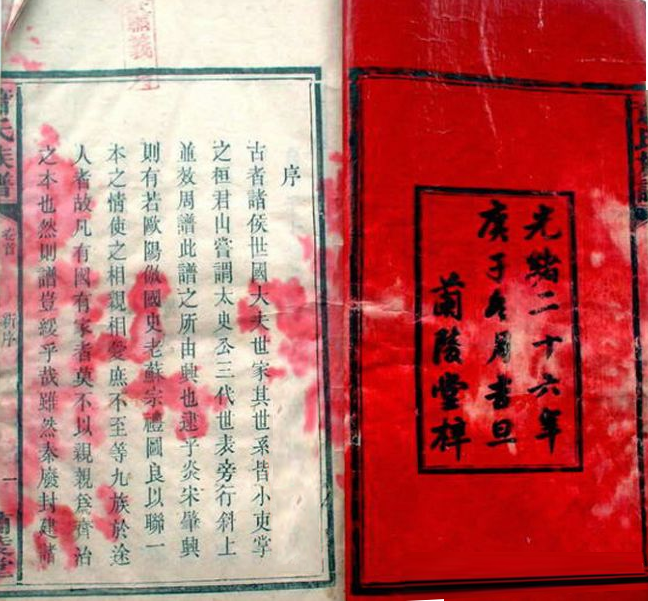 光緒二十六年
庚子冬月吉旦
蘭陵堂梓
序
古者諸侯世國大夫世家其世系皆小吏掌
之桓君山嘗謂太史公三代世表旁行斜上
並效周譜此譜之所由興也逮乎炎宋肇興
則有若歐陽倣國史老蘇宗禮圖良以聯一
本之情使之相親相愛庶不至等九族於途
人者故凡有國有家者莫不以親親爲齊治
之本也然則譜豈緩乎哉雖然秦廢封建諸
氏族譜 卷首 新序 一 蘭陵堂